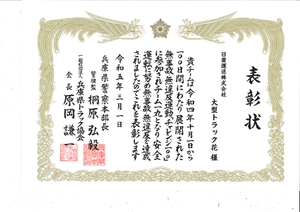 表彰状
日豊運送株式会社
大型トラック花 様
貴チームは令和四年十月一日から
一〇〇日間にわたり展開された
無事故・無違反運動「チャレンジ一〇〇」
に参加されチーム一丸となり安全
運転に努め無事故・無違反を達成
されましたのでこれを表彰します
令和五年三月一日
兵庫県警察本部長
警視監 桐原弘毅
一般社団法人 兵庫県トラック協会
会長 原岡謙一